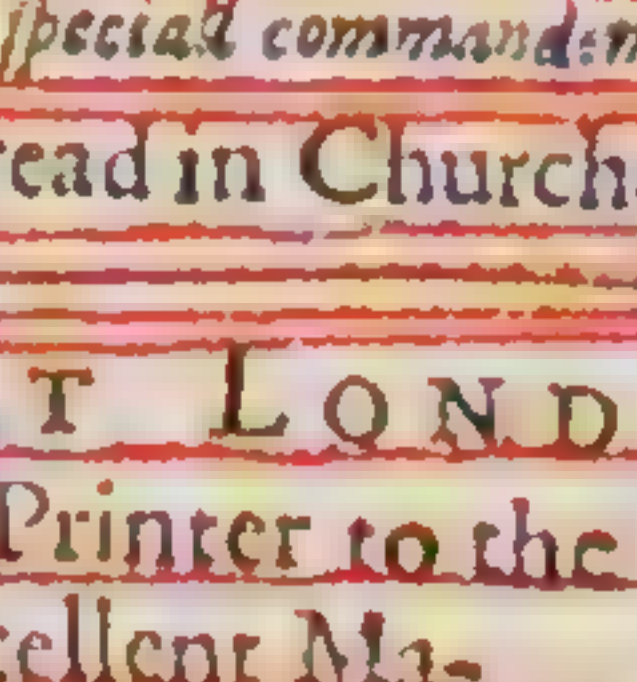 ſpeciall commandem
read in Church
T LOND
Printer to the
cellent Ma-